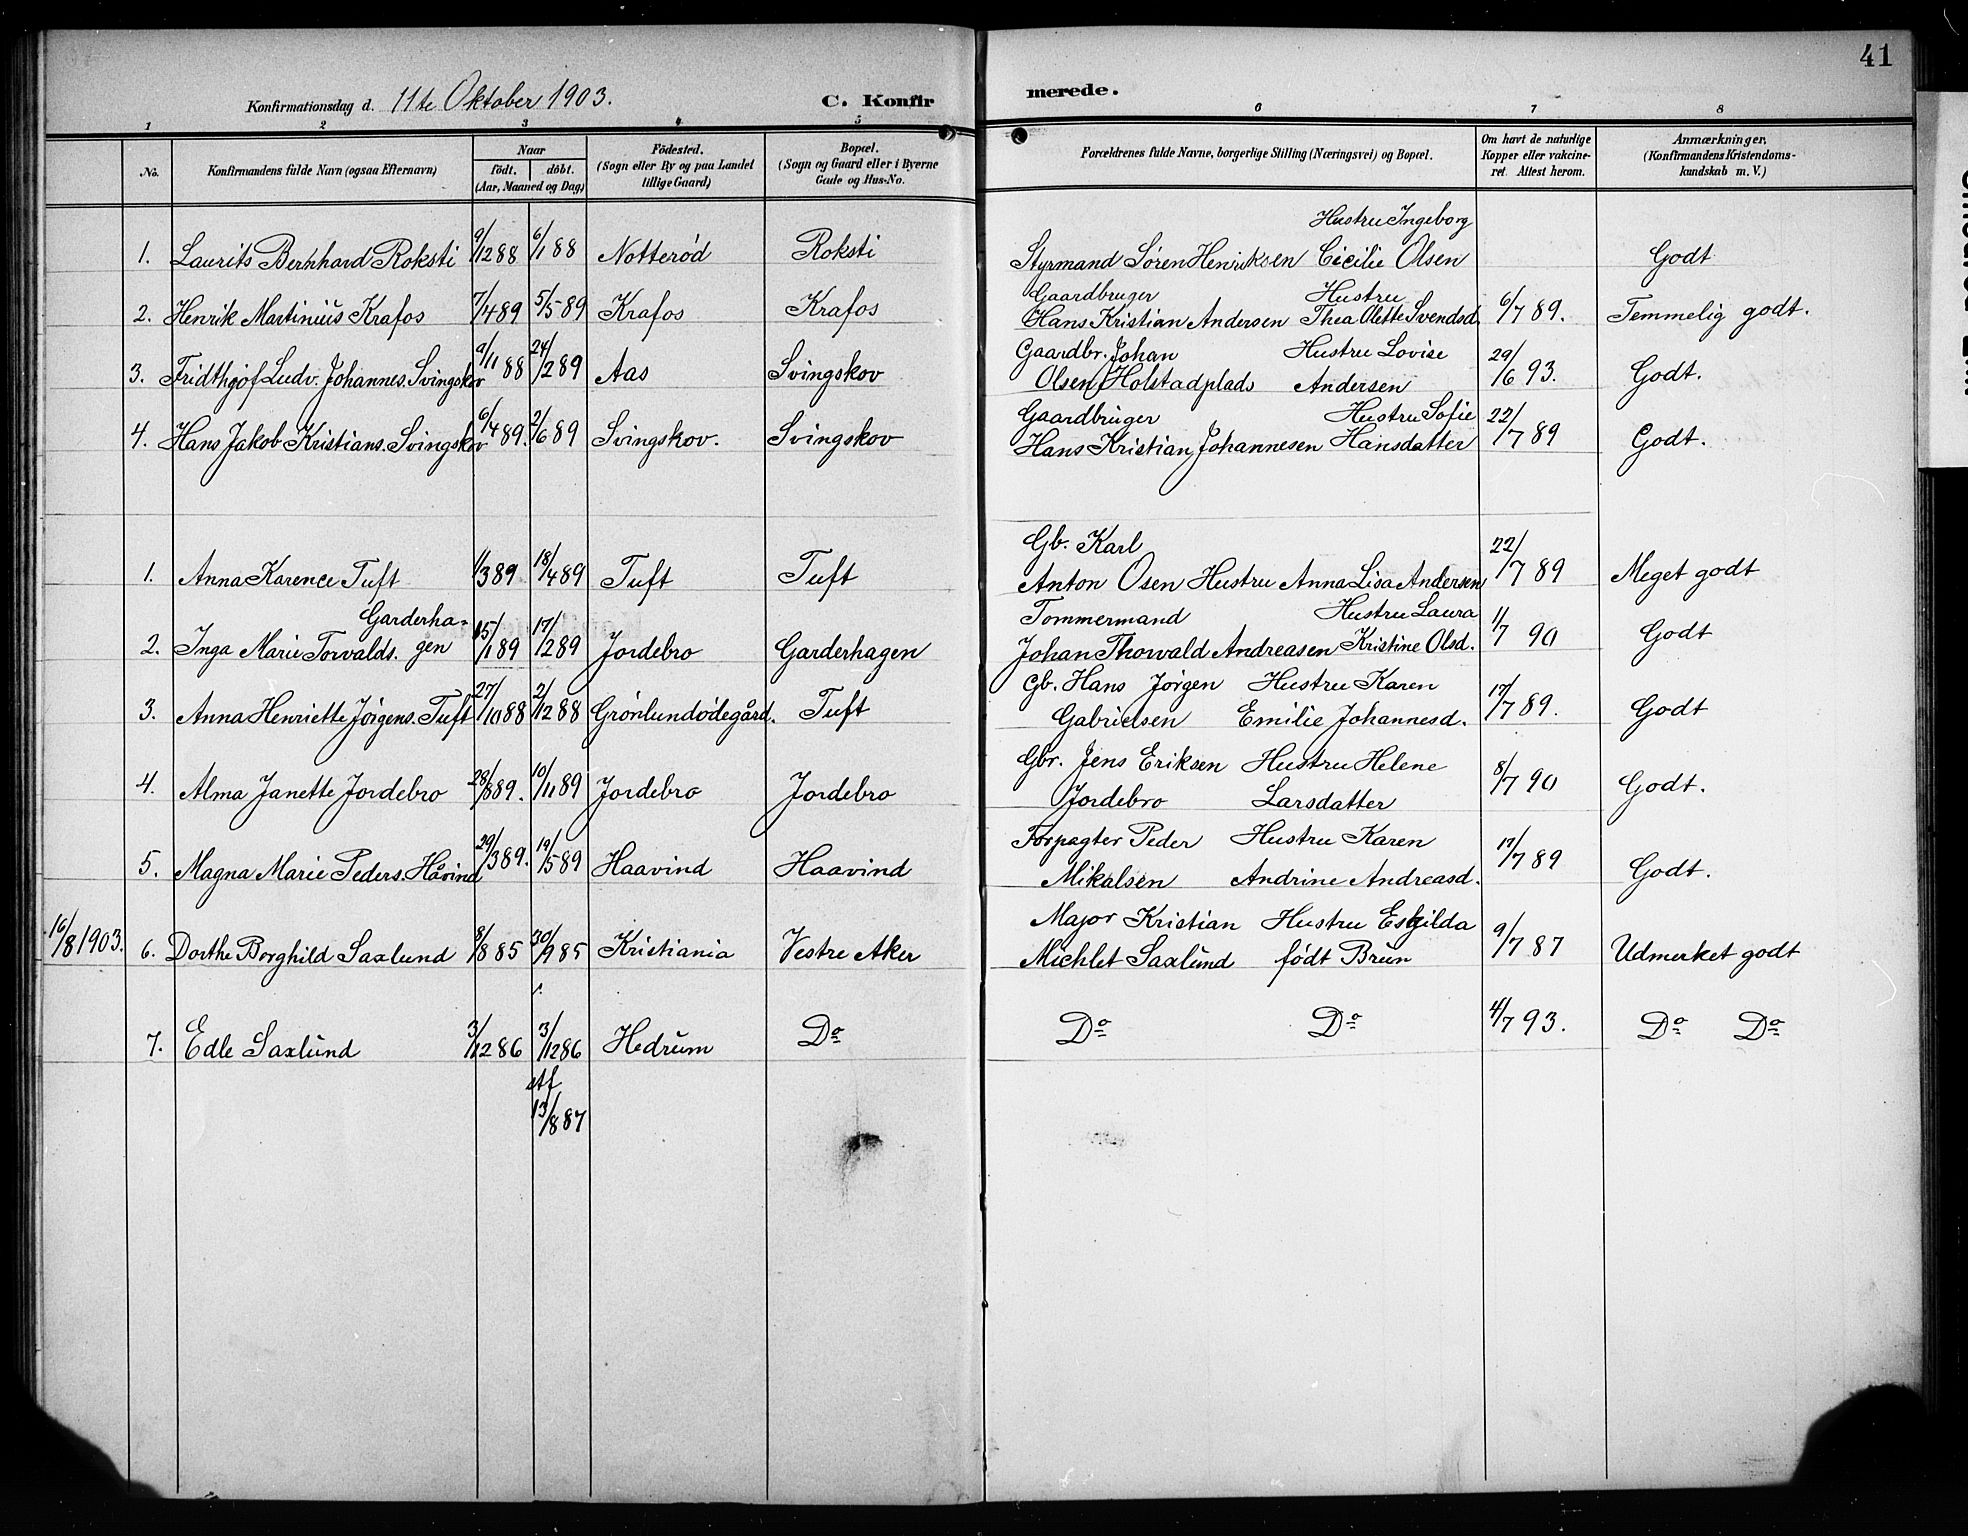 41
Konfirmationsdag d. 11te Oktober 1903. C. Konfirmerede.
1 2 3 4 5 6 7 8
No. Konfirmandens fulde Navn (ogsaa Efternavn) Naar født. døbt. (Aar, Maaned og Dag) Fødested. (Sogn eller By og paa Landet tillige Gaard) Bopæl. (Sogn og Gaard eller i Byerne Gade og Hus-No. Forældrenes fulde Navne, borgerlige Stilling (Næringsvei) og Bopæl. Om havt de naturlige Kopper eller vakcineret. Attest herom. Anmærkninger. (Konfirmandens Kristendomskundskab m. V.)
Hustru Ingeborg
1. Laurits Bernhard Roksti 9/12 88 6/1 88 Notterød Roksti Styrmand Søren Henriksen Cecilie Olsen Godt
Gaardbruger Hustru
2. Henrik Martinius Krafos 7/4 89 5/5 89 Krafos Krafos Hans Kristian Andersen Thea Olette Svendsd. 6/7 89. Temmelig godt.
Gaardbr. Johan Hustru Lovise
3. Fridthjof Ludv. Johannes. Svingskov 9/11 88 24/2 89 Aas Svingskov Olsen Holstadplads Andersen 29/6 93. Godt.
Gaardbruger Hustru Sofie
4. Hans Jakob Kristians. Svingskov 6/4 89. 2/6 89 Svingskov. Svingskov Hans Kristian Johannesen Hansdatter 22/7 89 Godt.
Gb. Karl
1. Anna Karence Tuft 1/3 89 18/4 89 Tuft Tuft Anton Osen Hustru Anna Lisa Andersen 22/7 89 Meget godt
Garderha- Tommermand Hustru Laura
2. Inga Marie Torvalds. gen 15/1 89 17/2 89 Jordebro Garderhagen Johan Thorvald Andreasen Kristine Olsd. 1/7 90 Godt
Gb. Hans Jørgen Hustru Karen
3. Anna Henriette Jørgens. Tuft 27/10 88 2/12 88 Grønlundødegård. Tuft Gabrielsen Emilie Johannesd. 17/7 89. Godt
Gbr. Jens Eriksen Hustru Helene
4. Alma Janette Jordebro 28/8 89. 10/11 89 Jordebro Jordebro Jordebro Larsdatter 8/7 90 Godt.
Forpagter Peder Hustru Karen
5. Magna Marie Peders. Håvind 29/3 89. 19/5 89 Haavind Haavind Mikalsen Andrine Andreasd. 17/7 89 Godt.
Major Kristian Hustru Eskilda
16/8 1903. 6. Dorthe Borghild Saxlund 8/8 85 20/9 85 Kristiania Vestre Aker Michlet Saxlund født Brun 9/7 87 Udmerket godt
7. Edle Saxlund 3/12 86 3/12 86 Hedrum Do Do Do 4/7 93. Do Do
Af
13/8 87